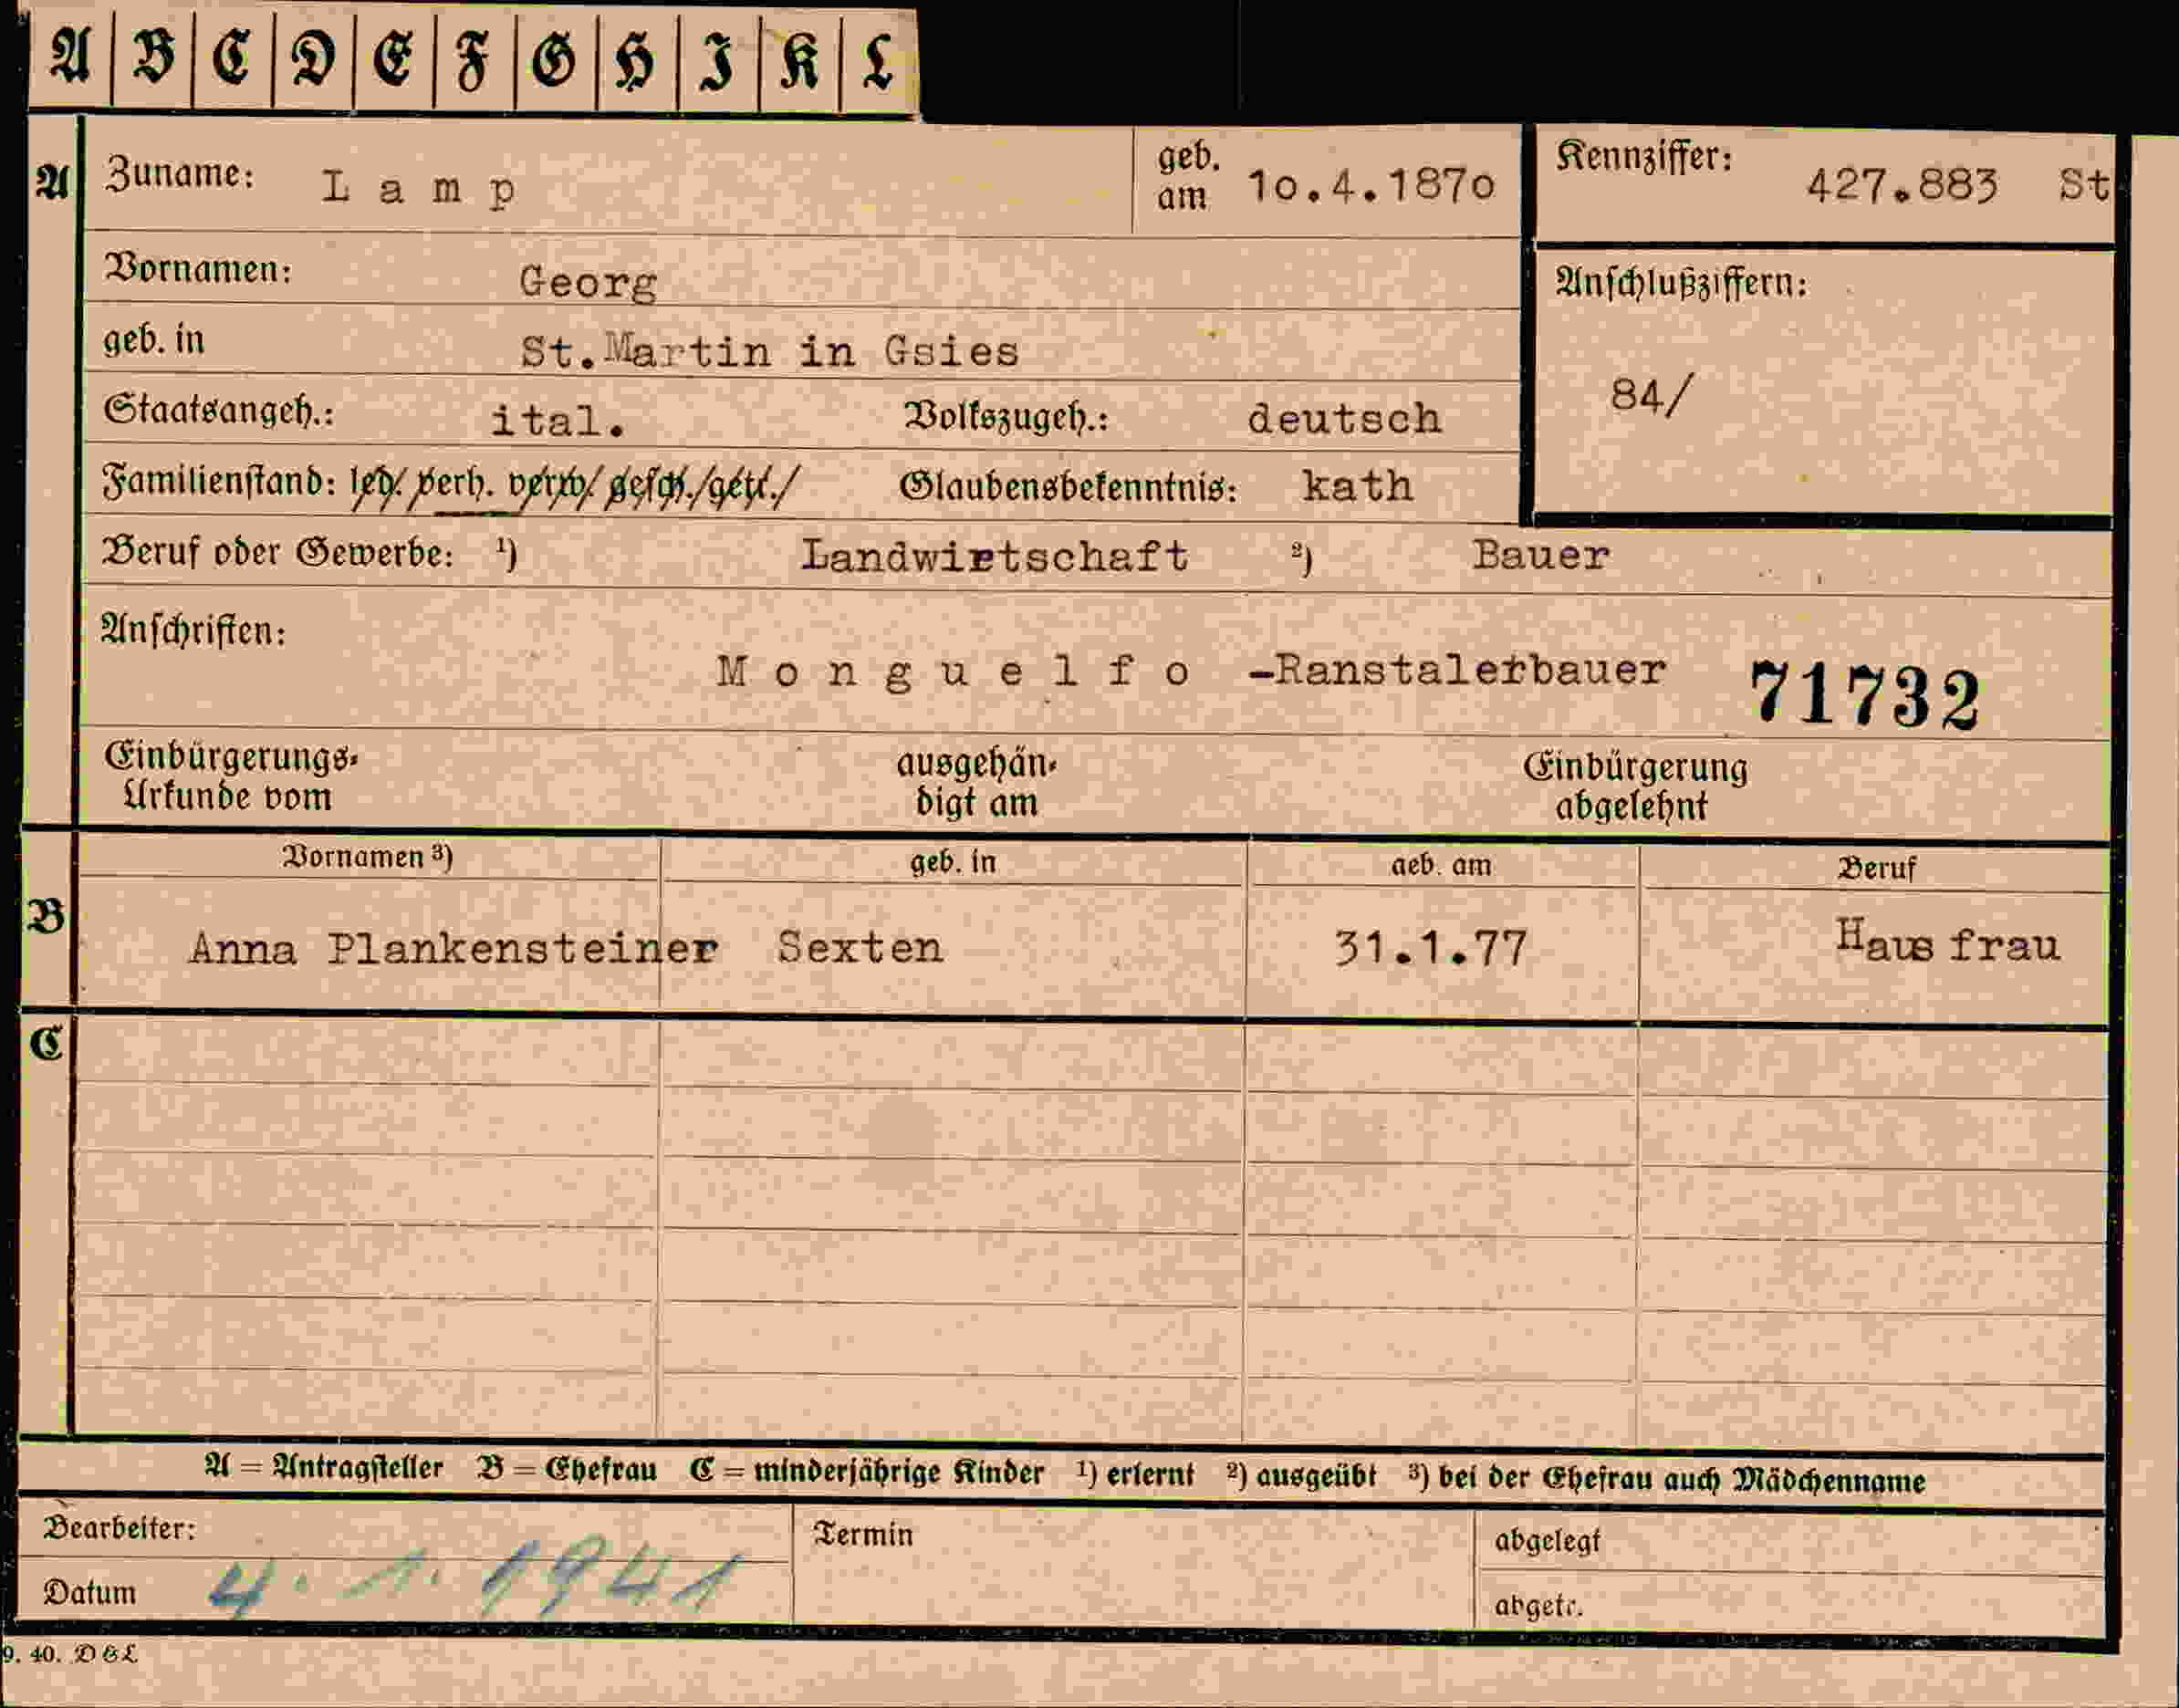 A B C D E F G H I K L
A Zuname: L a m p geb. am 10.4.1870 Kennziffer: 427.883 St
Vornamen: Georg Anschlußziffern:
geb. in St.Martin in Gsies
84/
Staatsangeh.: ital. Volkszugeh.: deutsch
Familienstand: led./ verh. verw./ gesch./getr./ Glaubensbekenntnis: kath
Beruf oder Gewerbe: ¹) Landwirtschaft ²) Bauer
Anschriften:
M o n g u e l f o -Ranstalerbauer 71732
Einbürgerungs-
Urkunde vom
ausgehän-
digt am
Einbürgerung
abgelehnt
Vornamen ³) geb. in geb. am Beruf
B Anna Plankensteiner Sexten 31.1.77 Hausfrau
C
A = Antragsteller B = Ehefrau C = minderjährige Kinder ¹) erlernt ²) ausgeübt ³) bei der Ehefrau auch Mädchenname
Bearbeiter: Termin abgelegt
Datum 4. 1. 1941 abgetr.
9. 40. D & L